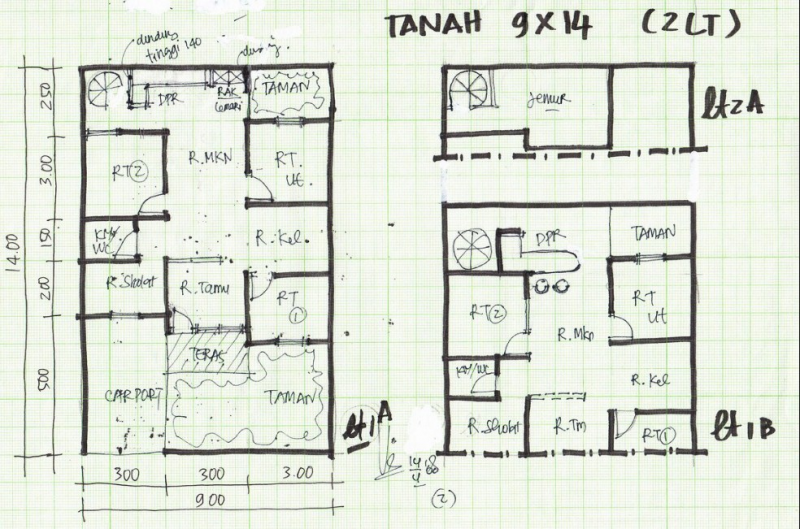 TANAH 9X14 (2LT)
dinding
tinggi 140
250
3.00
150
200
500
14.00
DPR
RAK
TAMAN
RT②
R.MKN
RT.
Ut.
KM/
WC
R.Kel.
R.Sholat
R.Tamu
RT
①
TERAS
CARPORT
TAMAN
300
300
3.00
9.00
lt1A
Jemur
lt2A
DPR
TAMAN
RT②
RT
Ut
R.Mkn
KM/WC
R.Kel
R.Sholat
R.Tm
RT①
lt1B
(2)